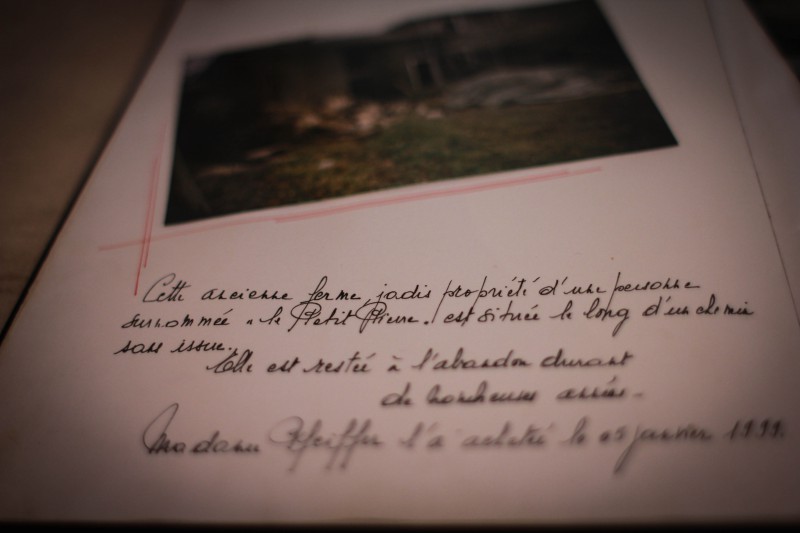 Cette ancienne ferme jadis propriété d'une personne
surnommée "le Petit Pierre" est située le long d'un chemin
sans issue.
Elle est restée à l'abandon durant
de nombreuses années.
Madame Pfeiffer l'a acheté le janvier 1999.